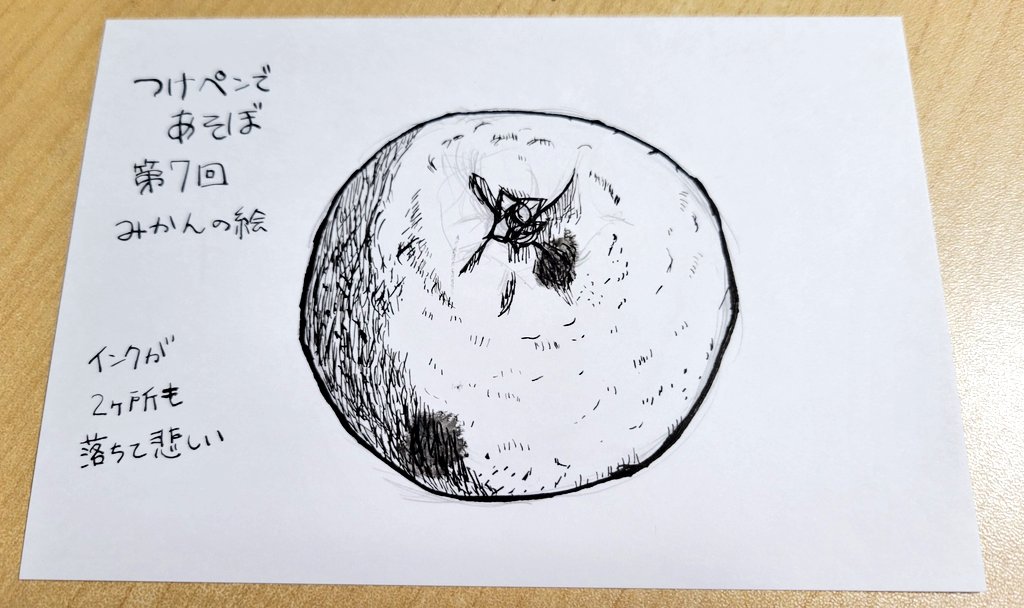 つけペンで
あそぼ
第7回
みかんの絵
インクが
2ヶ所も
落ちて悲しい